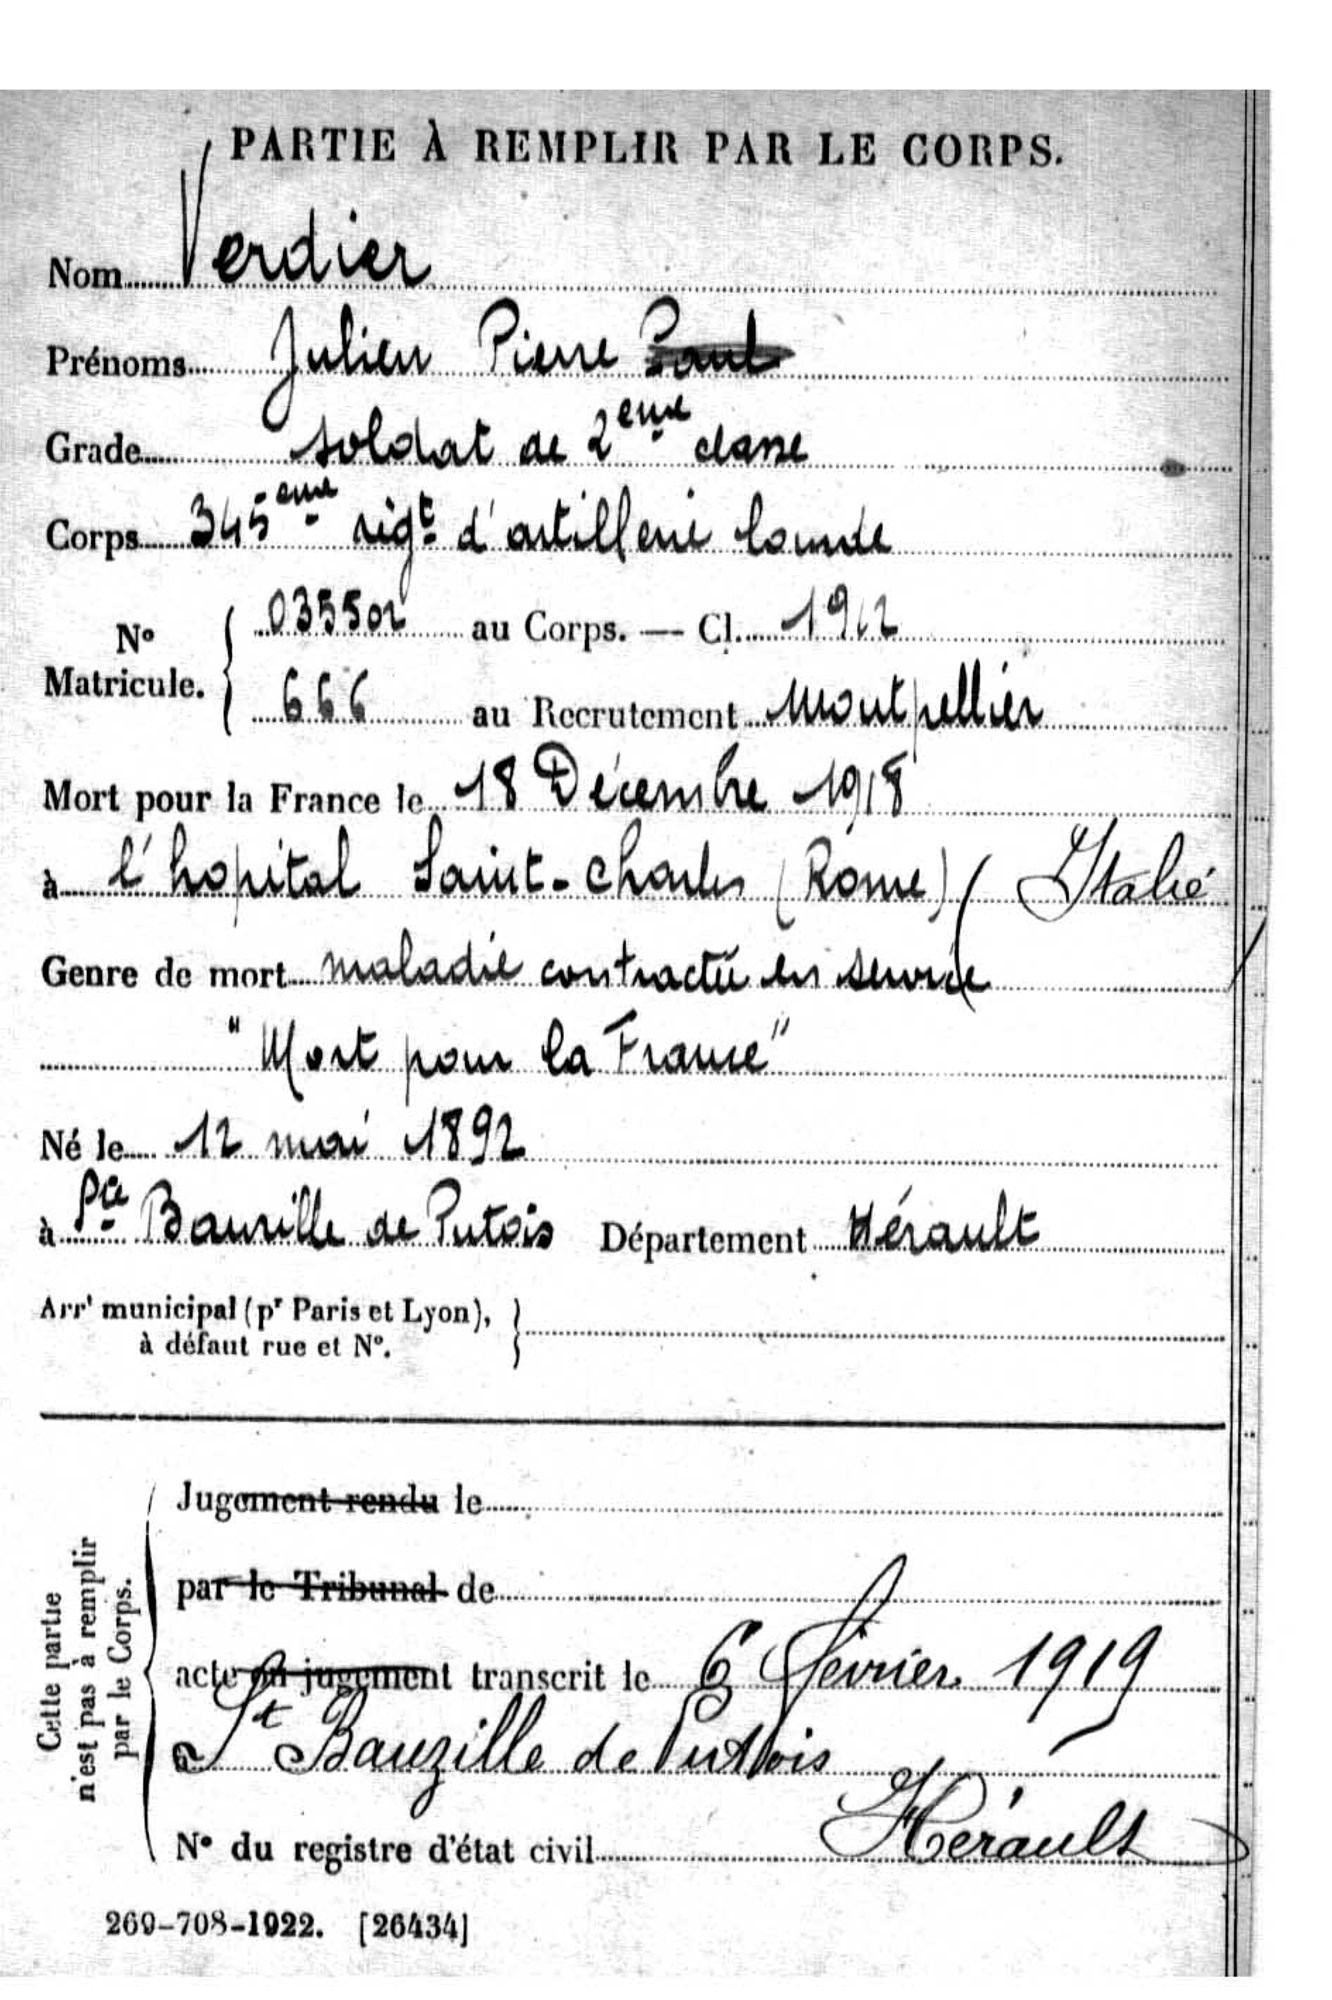 PARTIE À REMPLIR PAR LE CORPS.
Nom Verdier
Prénoms Julien Pierre Paul
Grade soldat de 2eme classe
Corps 345eme régt d'artillerie lourde
N° Matricule. 035502 au Corps. — Cl. 1912
666 au Recrutement Montpellier
Mort pour la France le 18 Décembre 1918
à l'hopital Saint-Charles (Rome) (Italie
Genre de mort maladie contractée en service
"Mort pour la France"
Né le 12 mai 1892
à Bauzille de Putois Département Hérault
Arrt municipal (pr Paris et Lyon),
à défaut rue et N°.
Cette partie
n'est pas à remplir
par le Corps.
Jugement rendu le
par le Tribunal de
acte ou jugement transcrit le 6 février 1919
à St Bauzille de Putois
Hérault
N° du registre d'état civil
269-708-1922. [26434]